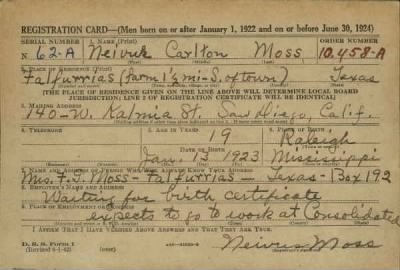 REGISTRATION CARD—(Men born on or after January 1, 1922 and on or before June 30, 1924)
SERIAL NUMBER 1. NAME (Print) ORDER NUMBER
N 62-A Carlton Moss 10.458-A
(First) (Middle) (Last)
2. PLACE OF RESIDENCE (Print)
Falfurrias (farm 1½ mi-S. of town) Texas
[THE PLACE OF RESIDENCE GIVEN ON THE LINE ABOVE WILL DETERMINE LOCAL BOARD
JURISDICTION; LINE 2 OF REGISTRATION CERTIFICATE WILL BE IDENTICAL]
3. MAILING ADDRESS
140-W. Kalmia St. San Diego, Calif.
4. TELEPHONE 5. AGE IN YEARS 6. PLACE OF BIRTH
19 Raleigh
DATE OF BIRTH
Jan. 13 1923 Mississippi
7. NAME AND ADDRESS OF PERSON WHO WILL ALWAYS KNOW YOUR ADDRESS
Moss - Falfurrias - Texas - Box 192
8. EMPLOYER'S NAME AND ADDRESS
Waiting for birth certificate
9. PLACE OF EMPLOYMENT OR BUSINESS
expects to go to work at Consolidated
I AFFIRM THAT I HAVE VERIFIED ABOVE ANSWERS AND THAT THEY ARE TRUE.
D. S. S. Form 1
(Revised 6-1-42) (over) Moss